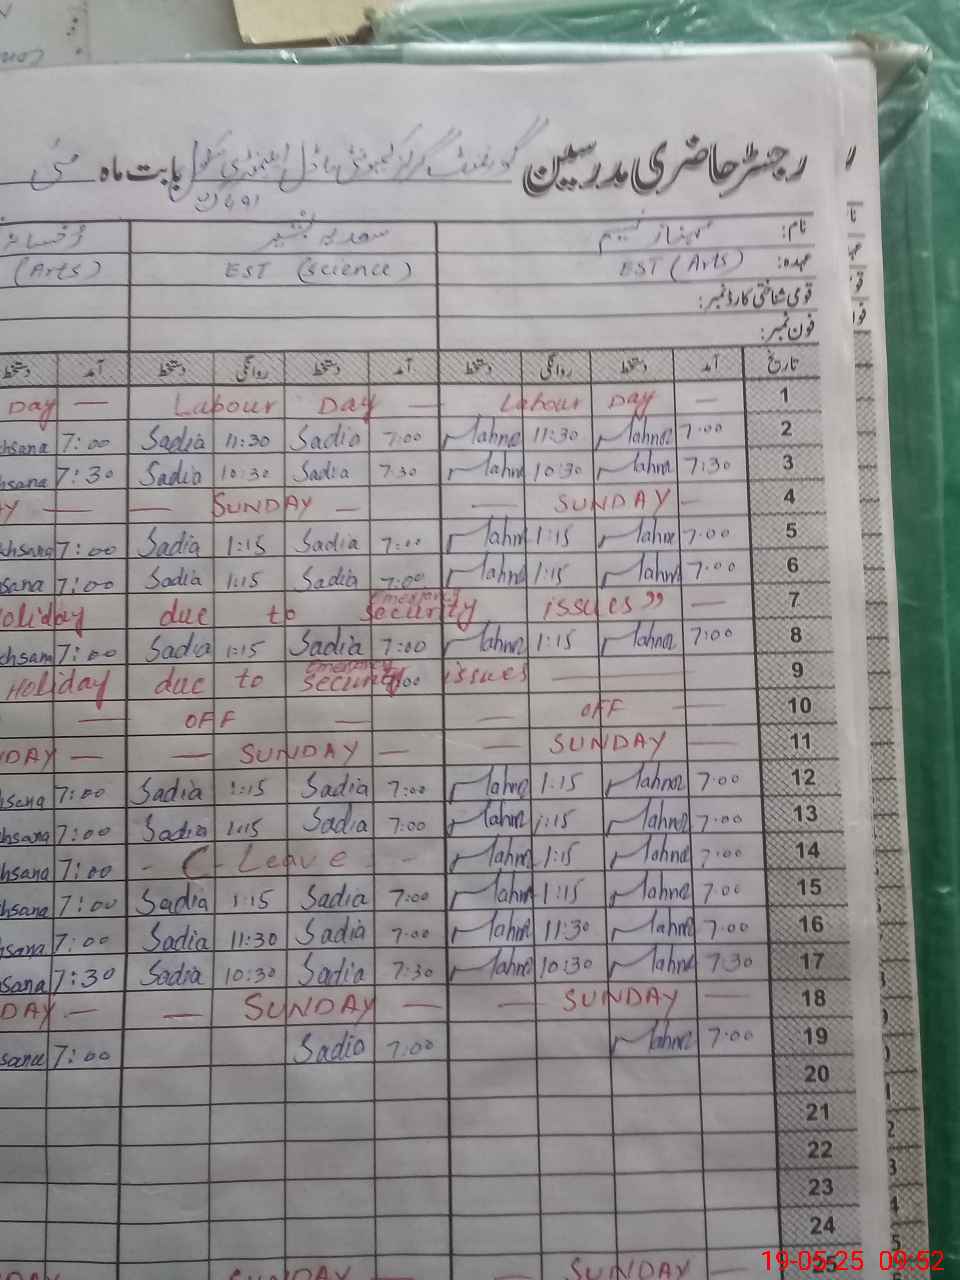 رجسٹر حاضری مدرسین گورنمنٹ گرلز کمیونٹی ماڈل ایلیمنٹری سکول بابت ماہ مئی
نام: مہناز نسیم سعدیہ بشیر
عہدہ: EST (Arts) EST (Science) (Arts)
قومی شناختی کارڈ نمبر:
فون نمبر:
تاریخ آمد دستخط روانگی دستخط آمد دستخط روانگی دستخط آمد دستخط
1 — Labour Day — Labour Day — Day
2 7:00 Mahnaz 11:30 Mahnaz 7:00 Sadia 11:30 Sadia 7:00 hsana
3 7:30 Mahnaz 10:30 Mahnaz 7:30 Sadia 10:30 Sadia 7:30 hsana
4 — SUNDAY — — SUNDAY — — AY
5 7:00 Mahnaz 1:15 Mahnaz 7:00 Sadia 1:15 Sadia 7:00 khsana
6 7:00 Mahnaz 1:15 Mahnaz 7:00 Sadia 1:15 Sadia 7:00 sana
7 Holiday due to emergency security issues” —
8 7:00 Mahnaz 1:15 Mahnaz 7:00 Sadia 1:15 Sadia 7:00 khsana
9 Holiday due to emergency security issues
10 — OFF — — OFF —
11 — SUNDAY — — SUNDAY — — NDAY
12 7:00 Mahnaz 1:15 Mahnaz 7:00 Sadia 1:15 Sadia 7:00 hsana
13 7:00 Mahnaz 1:15 Mahnaz 7:00 Sadia 1:15 Sadia 7:00 hsana
14 7:00 Mahnaz 1:15 Mahnaz - C-Leave - 7:00 hsana
15 7:00 Mahnaz 1:15 Mahnaz 7:00 Sadia 1:15 Sadia 7:00 hsana
16 7:00 Mahnaz 11:30 Mahnaz 7:00 Sadia 11:30 Sadia 7:00 sana
17 7:30 Mahnaz 10:30 Mahnaz 7:30 Sadia 10:30 Sadia 7:30 sana
18 — SUNDAY — — SUNDAY — — DAY
19 7:00 Mahnaz 7:00 Sadia 7:00 sana
20
21
22
23
24
25 SUNDAY SUNDAY
19-05-25 09:52